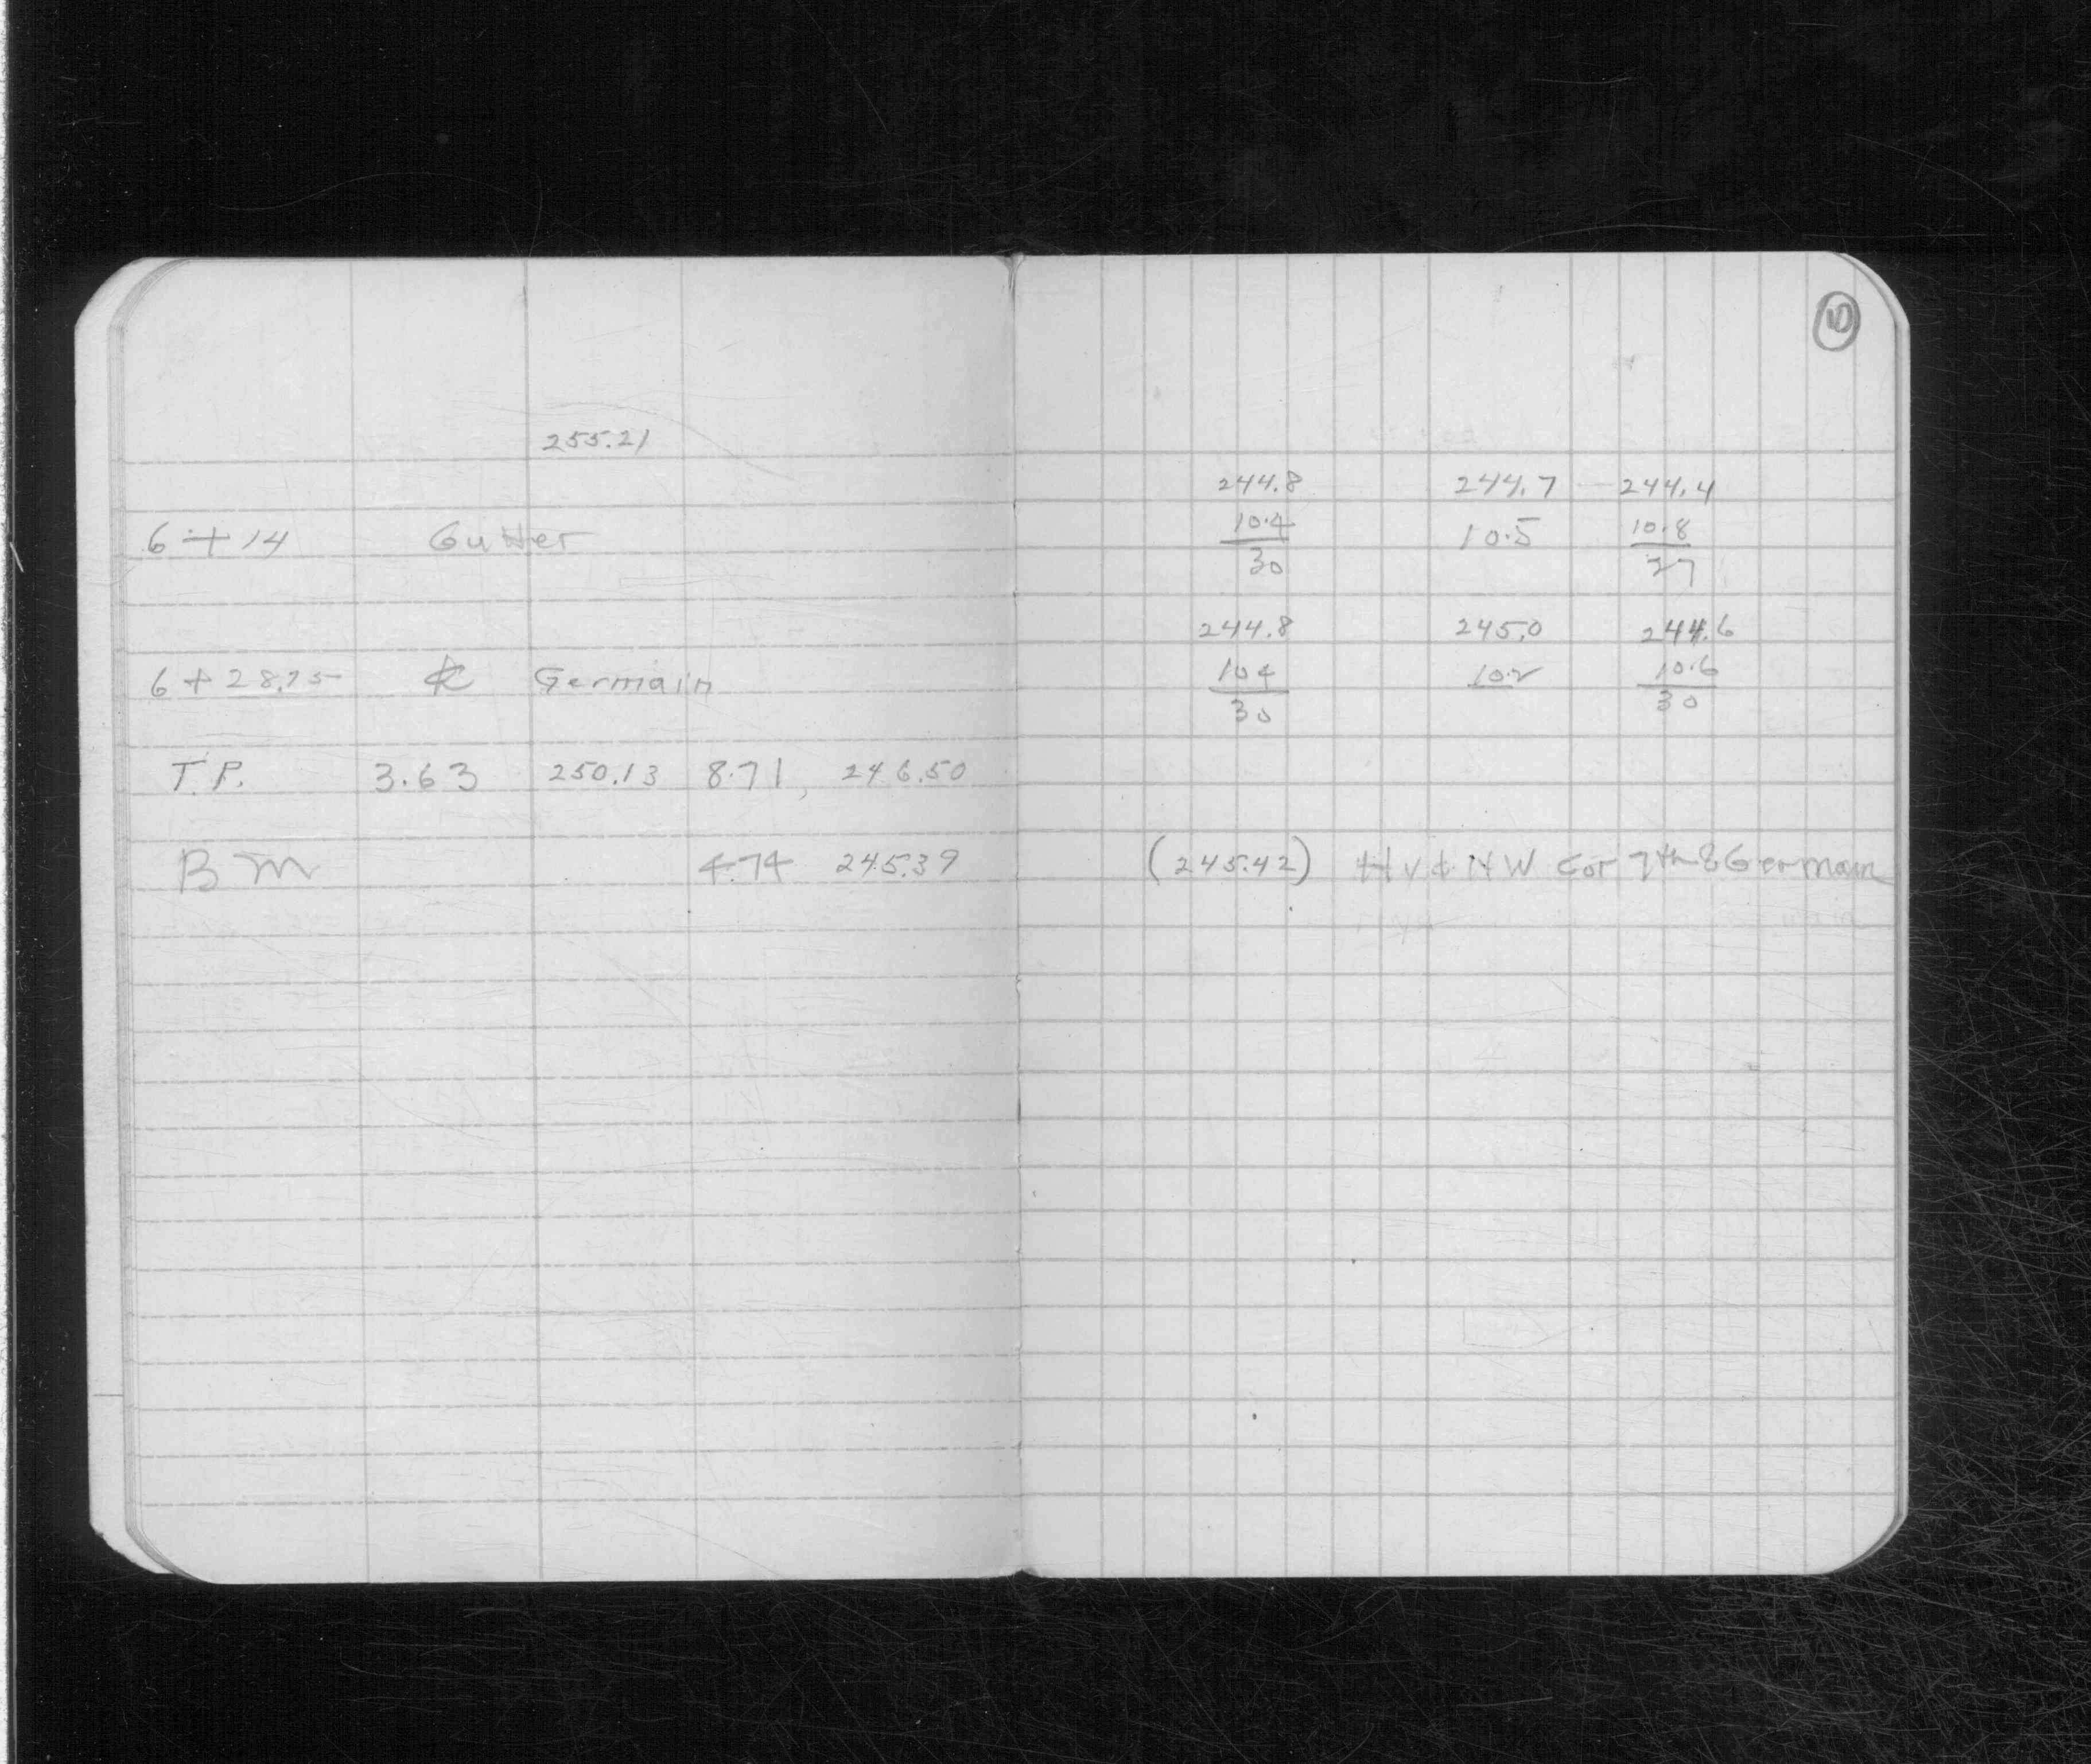 10
255.21
244.8 244.7 244.4
6+14 Gutter 10.4 10.5 10.8
30 27
244.8 245.0 244.6
6+28.75 ℄ Germain 10.4 10.2 10.6
30 30
T.P. 3.63 250.13 8.71 246.50
BM 4.74 245.39 (245.42) Hyd. NW Cor 7th & Germain